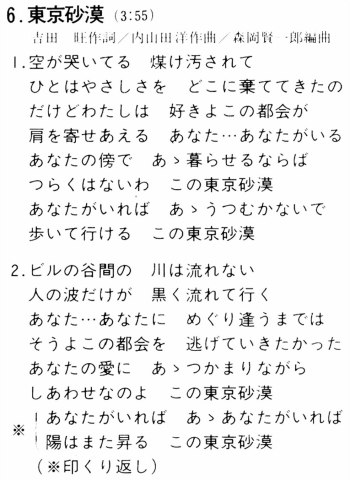 6.東京砂漠(3:55)
吉田 旺作詞／内山田洋作曲／森岡賢一郎編曲
1.空が哭いてる 煤け汚されて
ひとはやさしさを どこに棄ててきたの
だけどわたしは 好きよこの都会が
肩を寄せあえる あなた…あなたがいる
あなたの傍で あゝ暮らせるならば
つらくはないわ この東京砂漠
あなたがいれば あゝうつむかないで
歩いて行ける この東京砂漠
2.ビルの谷間の 川は流れない
人の波だけが 黒く流れて行く
あなた…あなたに めぐり逢うまでは
そうよこの都会を 逃げていきたかった
あなたの愛に あゝつかまりながら
しあわせなのよ この東京砂漠
※ あなたがいれば あゝあなたがいれば
陽はまた昇る この東京砂漠
(※印くり返し)